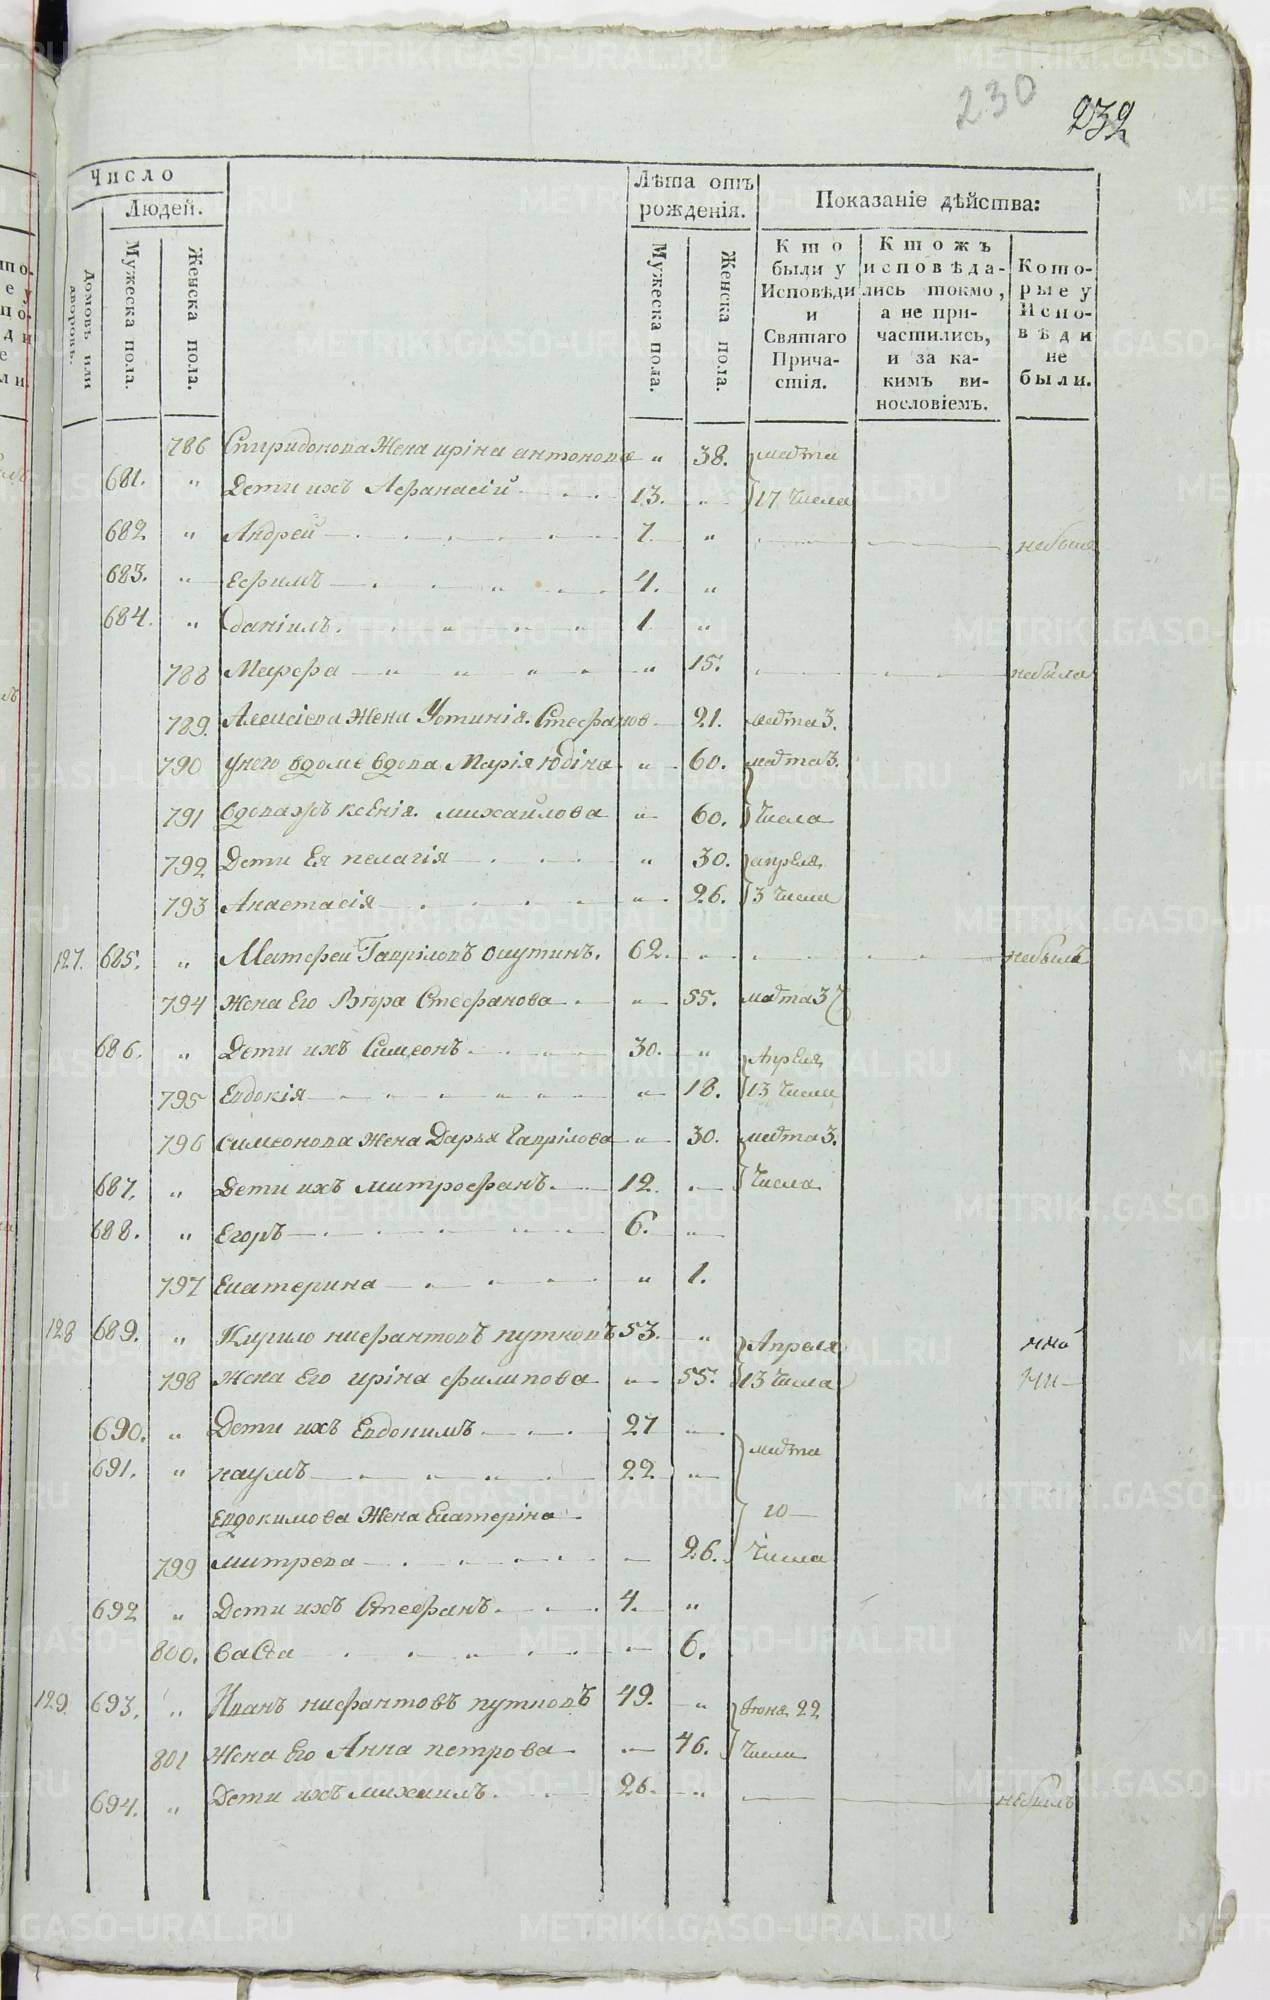 230 232
Число
Людей.
Домовъ или дворовъ.
Мужеска пола.
Женска пола.
Лѣта отъ рожденія.
Мужеска пола.
Женска пола.
Показаніе дѣйства:
Кто были у Исповѣди и Святаго Причастія.
Ктожъ исповѣдались токмо, а не причастились, и за какимъ винословіемъ.
Которые у Исповѣди не были.
786 Спиридонова Жена иріна антонова " 38. марта
681. " Дети ихъ Афанасій 13. " 17 числа
682 " Андрей 7. " небыли
683. " Ефимъ 4. "
684. " даніилъ. 1 "
788 Марфа " 15. небыла
789. Алексіева Жена Устинія. Стефанов 21. марта 3.
790 Унего вдоме вдова Марія юдіна " 60. марта 3.
791 вдоважъ ксенія. михайлова " 60. числа
792 Дети Ея пелагія " 30. апреля
793 Анастасія " 26. 3 числа
127. 685. " Матфеи Гаврііловъ 62. небылъ
794 Жена Его Вѣра Стефанова " 55. марта 3
686. " Дети ихъ Симеонъ 30. " Апреля
795 Евдокія " 18. 13 числа
796 симеонова Жена Дарья Гаврілова " 30. марта 3.
687. " Дети ихъ митрофанъ 12. числа
688. " Егоръ 6. "
797 Екатерина " 1.
128 689. " Кирило нифантовъ путковъ 53. " Апреля
798 Жена Его иріна филипова " 55. 13 числа
690. " Дети ихъ Евдокимъ 27 " марта
691. " наумъ 22. "
Евдокимова Жена Екатеріна 10
799 митрева 26. числа
692 " Дети ихъ Стефанъ. 4. "
800. васса 6.
129. 693. " Иванъ нифантовъ путковъ 49. " Іюня 22
801 Жена Его Анна петрова 46. числа
694. " Дети ихъ михаилъ. 26. " небылъ
METRIKI.GASO-URAL.RU